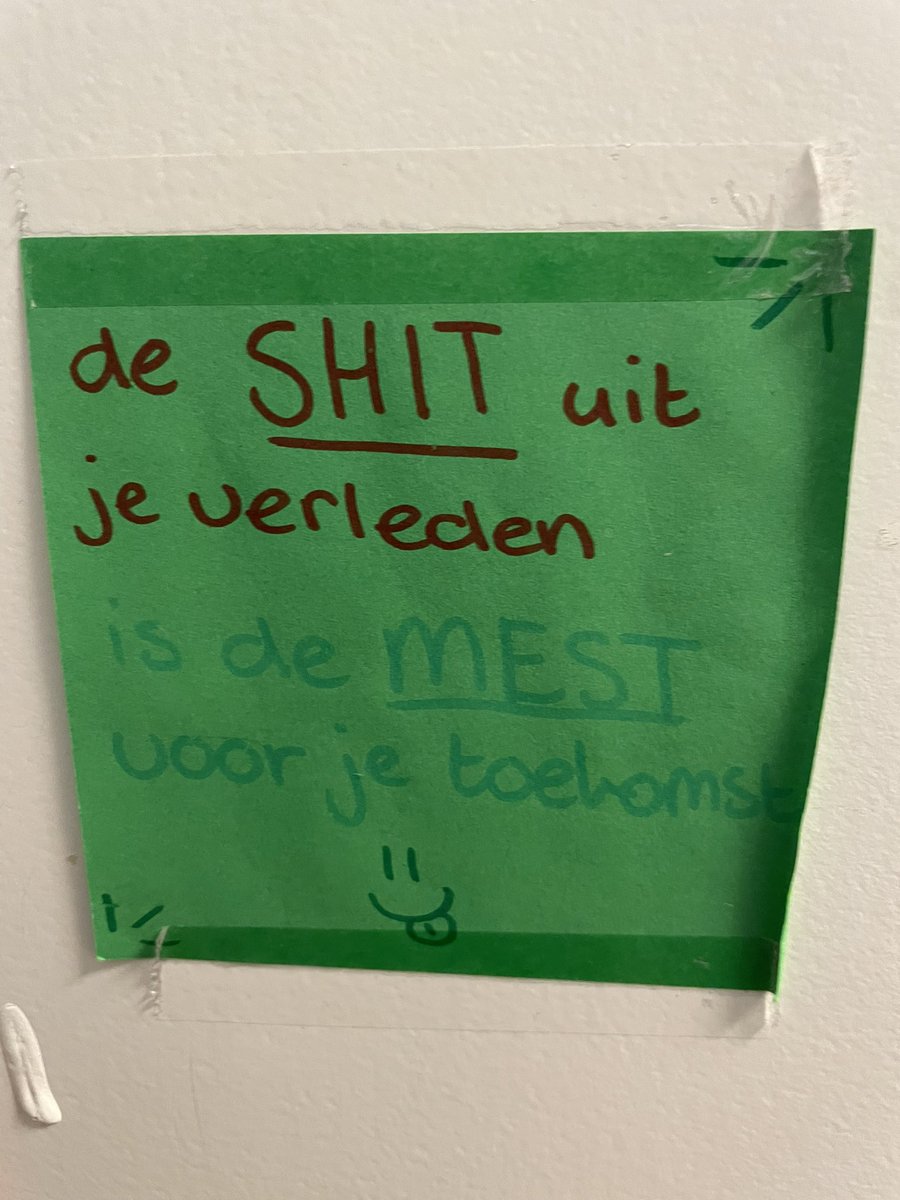 de SHIT uit
je verleden
is de MEST
voor je toekomst